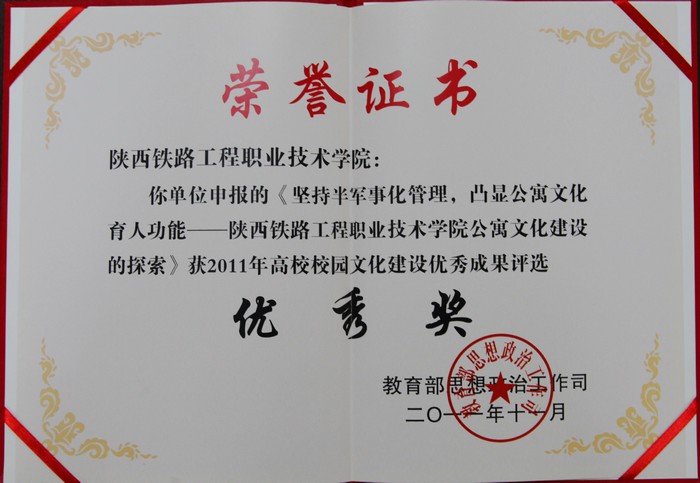 荣誉证书
陕西铁路工程职业技术学院：
你单位申报的《坚持半军事化管理，凸显公寓文化
育人功能——陕西铁路工程职业技术学院公寓文化建设
的探索》获2011年高校校园文化建设优秀成果评选
优秀奖
教育部思想政治工作司
教育部思想政治工作司
二〇一一年十一月